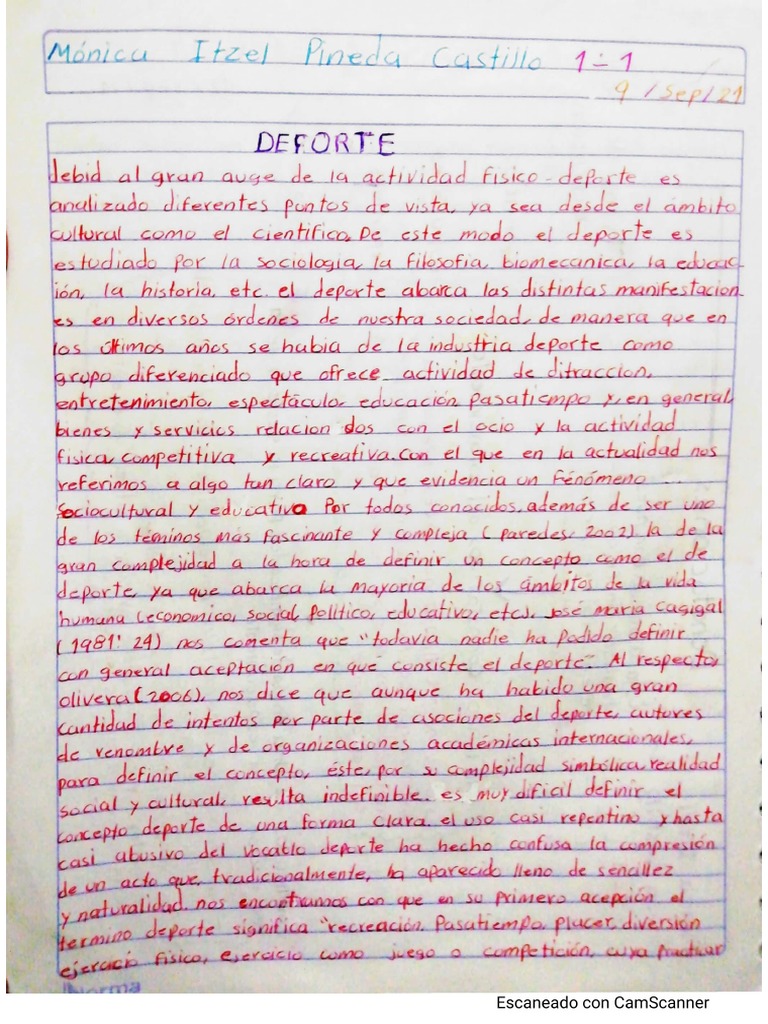 Mónica Itzel Pineda Castillo 1-1
9 /Sep/21
DEPORTE
debid al gran auge de la actividad fisico-deporte es
analizado diferentes puntos de vista, ya sea desde el ámbito
cultural como el cientifico, De este modo el deporte es
estudiado por la sociologia, la filosofia, biomecanica, la educac-
ión, la historia, etc. el deporte abarca las distintas manifestacion-
es en diversos órdenes de nuestra sociedad, de manera que en
los últimos años se habia de la industria deporte como
grupo diferenciado que ofrece actividad de ditraccion,
entretenimiento, espectáculo, educación pasatiempo y, en general,
bienes y servicios relacion dos con el ocio y la actividad
fisica, competitiva y recreativa. con el que en la actualidad nos
referimos a algo tan claro y que evidencia un fénómeno ...
Sociocultural y educativa Por todos conocidos, además de ser uno
de los téminos mas fascinante y compleja (paredes, 2002) la de la
gran complejidad a la hora de definir un concepto como el de
deporte, ya que abarca la mayoria de los ámbitos de la vida
humana (economico, social, politico, educativo, etc). José maria cagigal
(1981: 24) nos comenta que "todavia nadie ha podido definir
con general aceptación en que consiste el deporte". Al respecto,
olivera (2006), nos dice que aunque ha habido una gran
cantidad de intentos por parte de asociones del deporte, autores
de renombre y de organizaciones académicas internacionales,
para definir el concepto, éste, por su complejidad simbólica, realidad
social y cultural, resulta indefinible. es muy dificil definir el
concepto deporte de una forma clara. el uso casi repentino y hasta
casi abusivo del vocablo deporte ha hecho confusa la compresión
de un acto que, tradicionalmente, ha aparecido lleno de sencillez
y naturalidad. nos encontramos con que en su primero acepción el
termino deporte significa "recreación, Pasatiempo, placer, diversión
ejercicio fisico, ejercicio como juego o competición, cuya practicar
Norma
Escaneado con CamScanner